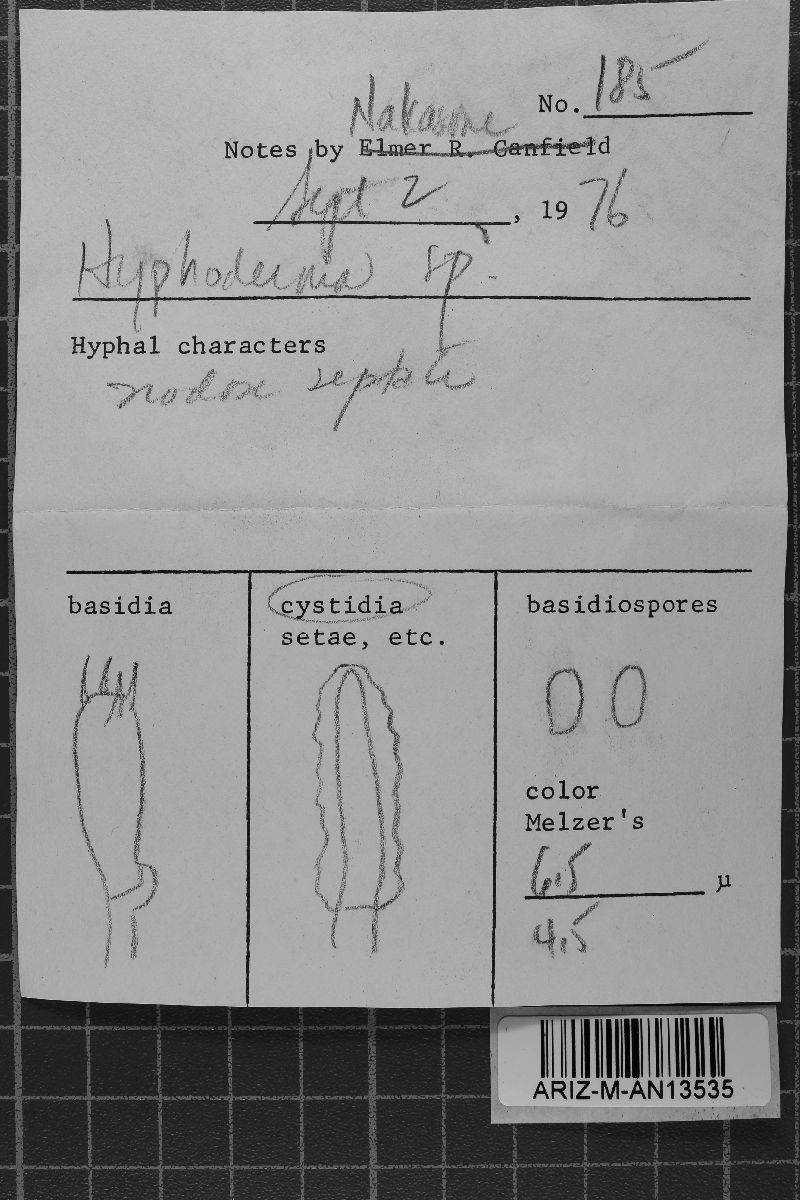 No. 185
Nakasone
Notes by Elmer R. Canfield
Sept 2, 1976
Hyphoderma sp.
Hyphal characters
nodose septate
basidia
cystidia
setae, etc.
basidiospores
color
Melzer's
6.5 µ
4.5
ARIZ-M-AN13535